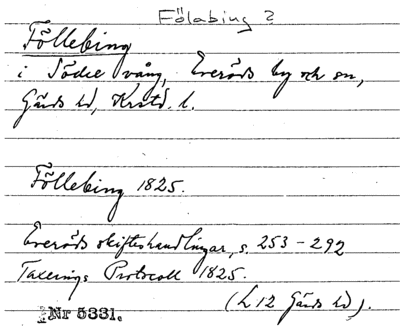 Fölabing ?
Föllebing
i Södre vång, Everöds by och sn,
Gärds hd, Krstd. l.
Föllebing 1825.
Everöds skifteshandlingar, s. 253-292
Taxerings Protocoll 1825.
(L 12 Gärds hd).
Nr 5331.